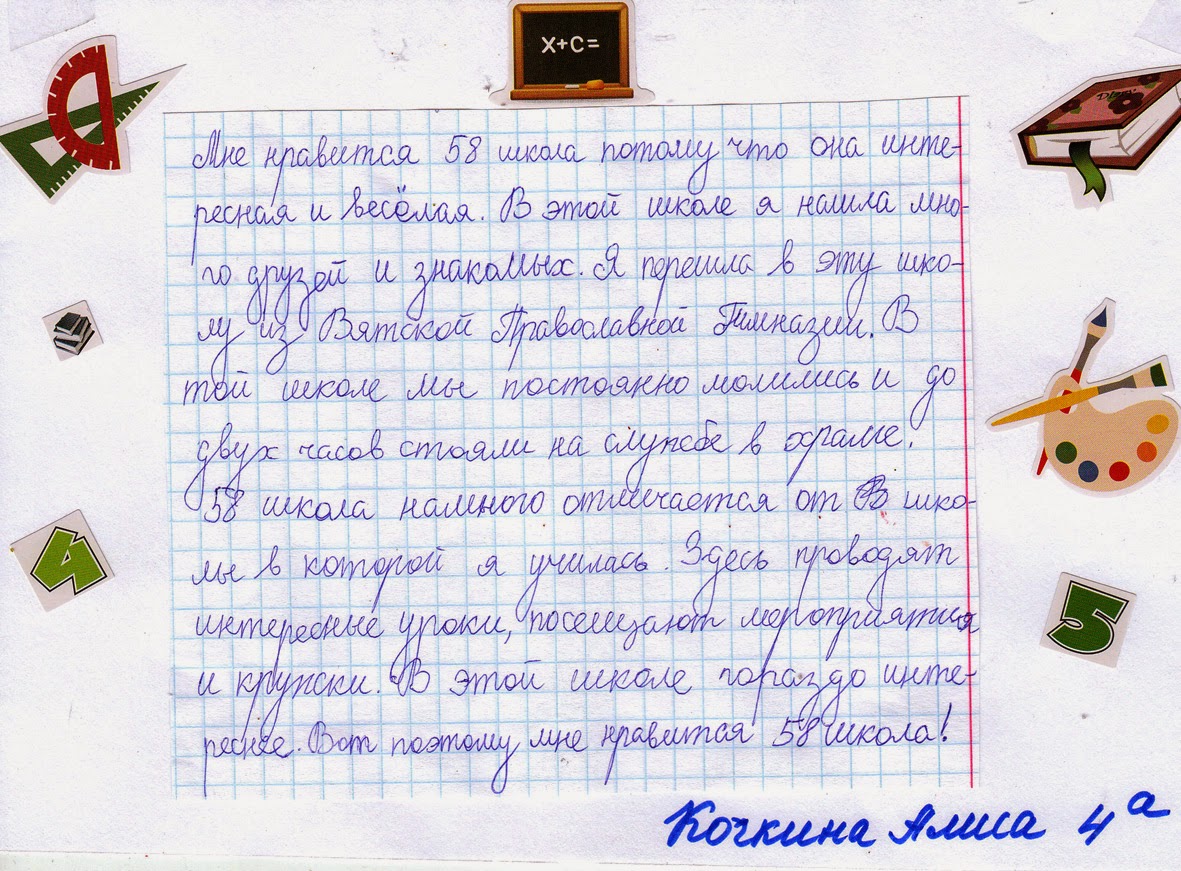 x+c=
Diary
Мне нравится 58 школа потому что она инте-
ресная и весёлая. В этой школе я нашла мно-
го друзей и знакомых. Я перешла в эту шко-
лу из Вятской Православной Гимназии. В
той школе мы постоянно молились и до
двух часов стояли на службе в храме.
58 школа намного отличается от В шко-
лы в которой я училась. Здесь проводят
интересные уроки, посещают мероприятия
и кружки. В этой школе гораздо инте-
реснее. Вот поэтому мне нравится 58 школа!
4
5
Кочкина Алиса 4а